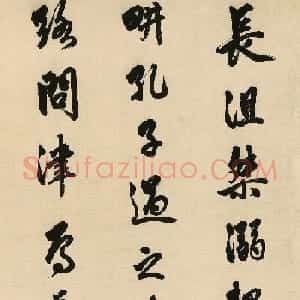 長沮桀溺
畊孔子過之
路問津焉
Shufaziliao.COM